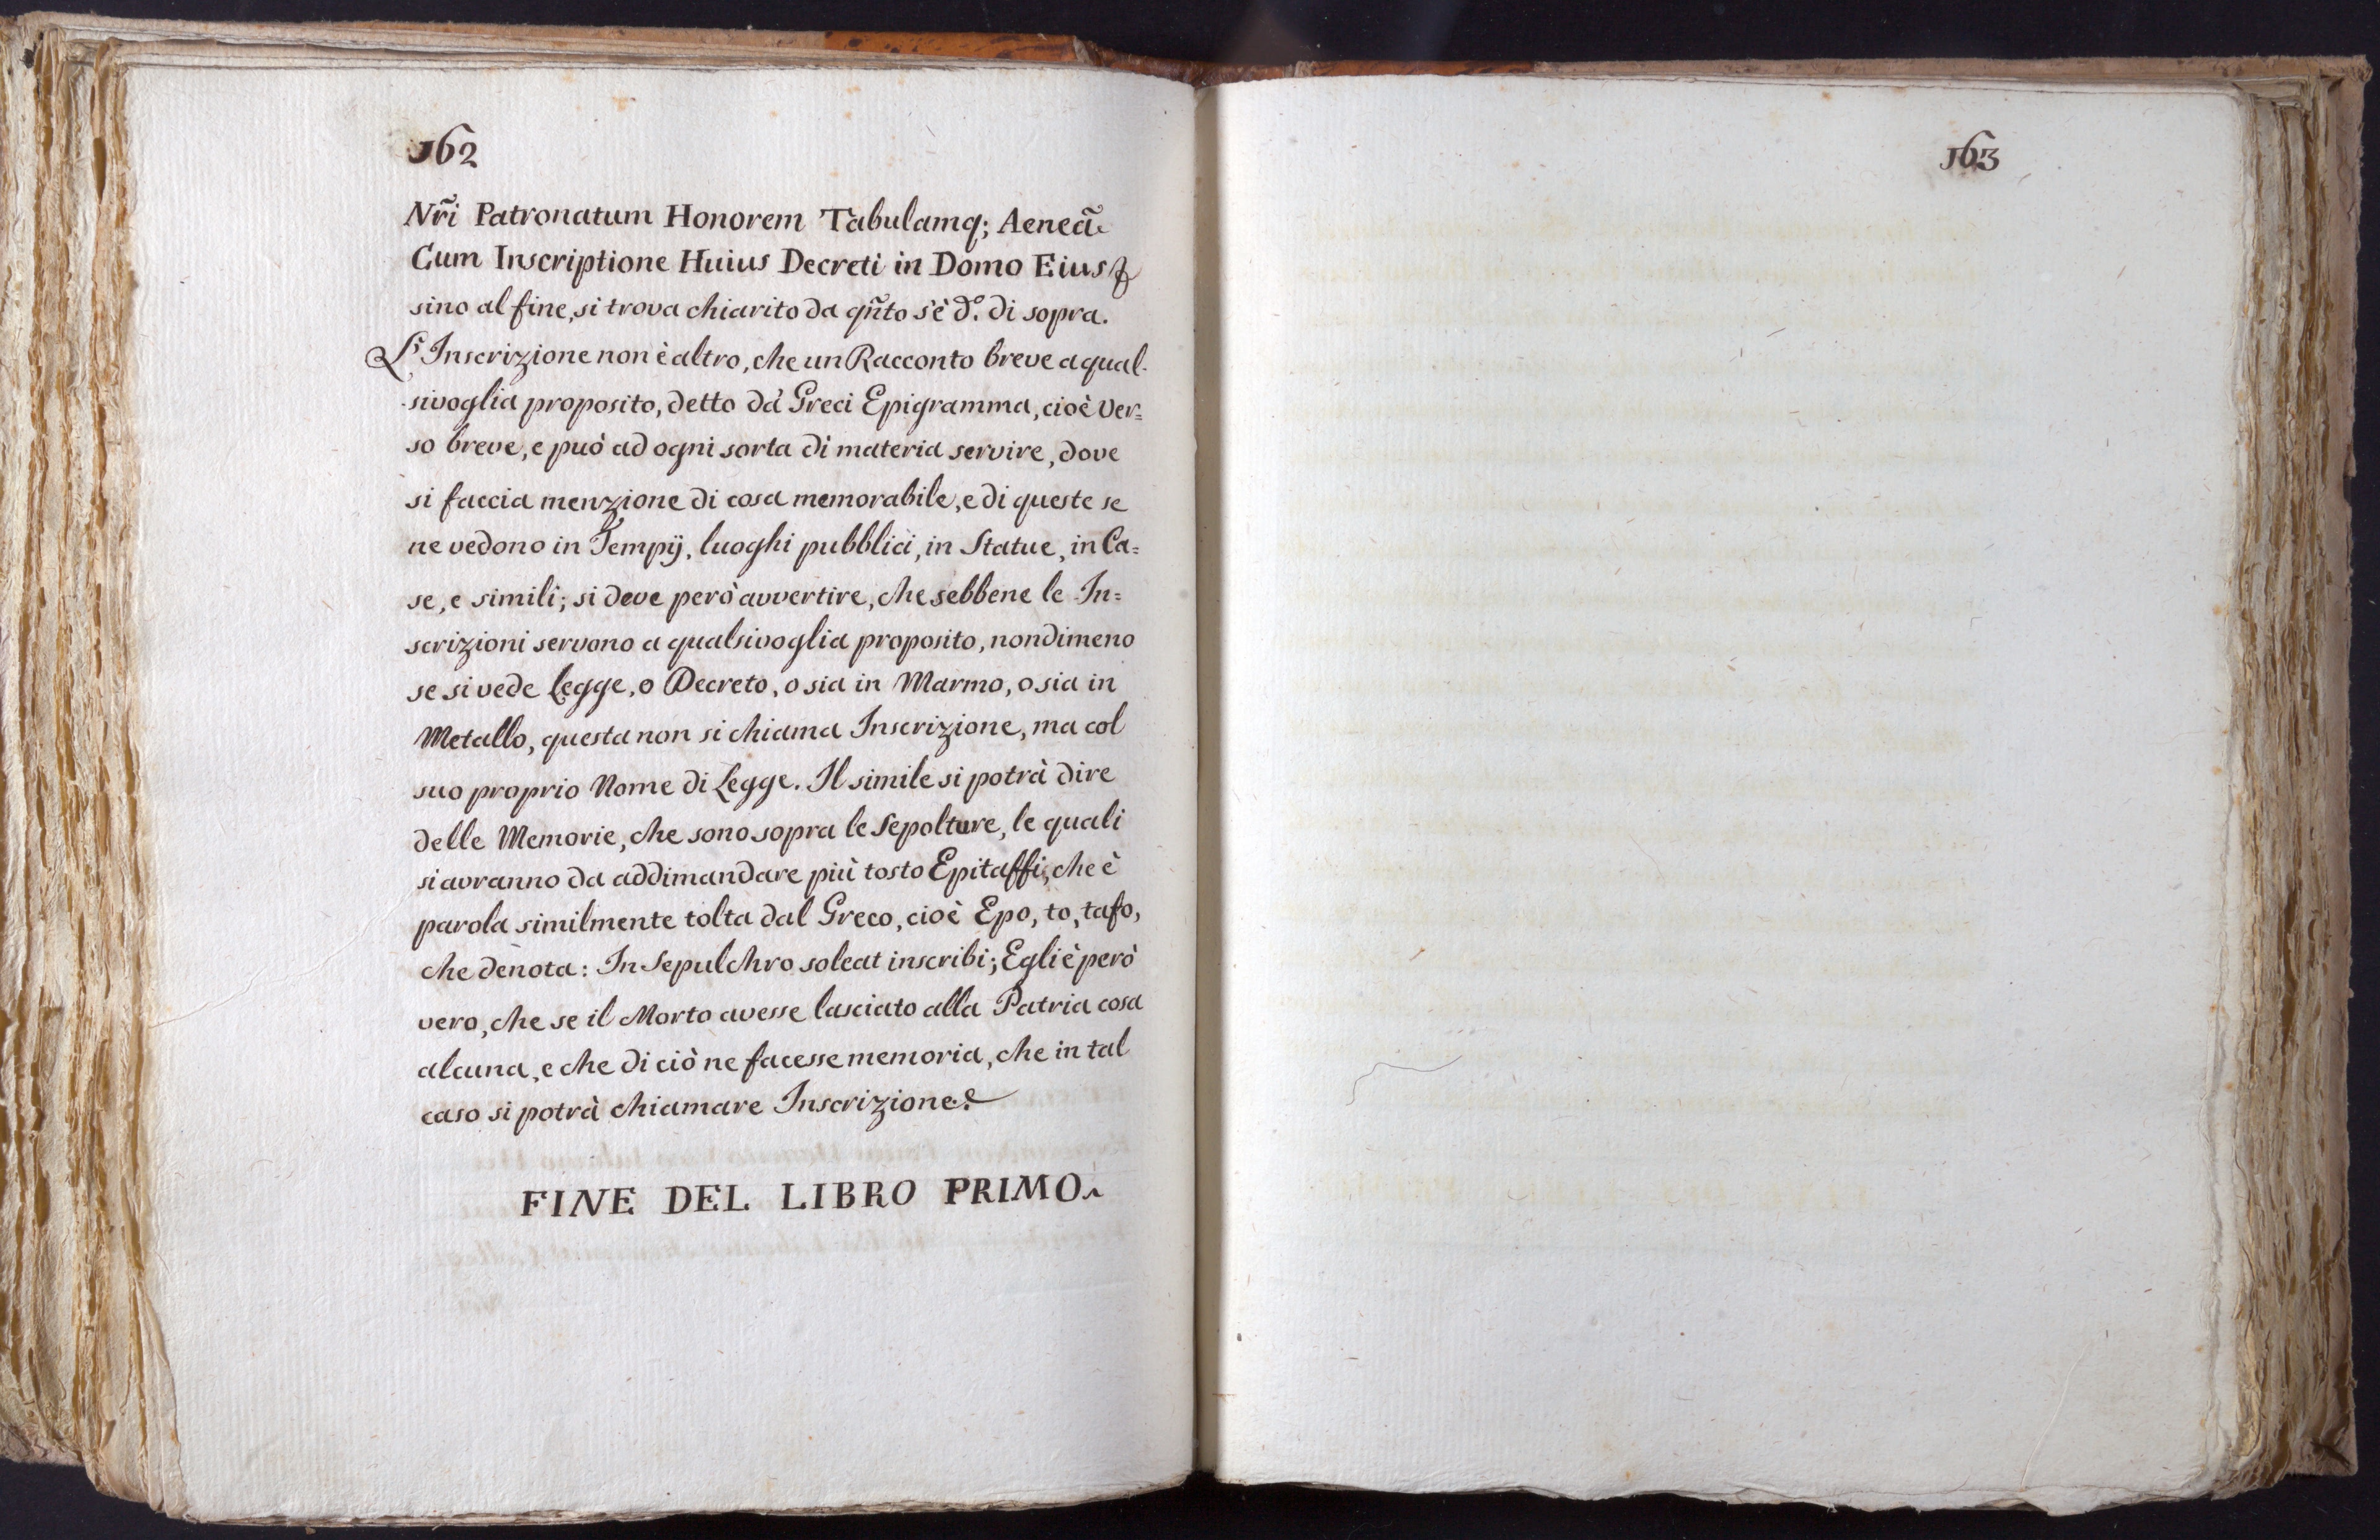 162
Nr̃i Patronatum Honorem Tabulamq; Aeneã
Cum Inscriptione Huius Decreti in Domo Eius
sino al fine, si trova chiarito da qñto s'è d.º di sopra.
L'Inscrizione non è altro, che un Racconto breve a qual-
sivoglia proposito, detto da' Greci Epigramma, cioè Ver=
so breve, e può ad ogni sorta di materia servire, dove
si faccia menzione di cosa memorabile, e di queste se
ne vedono in Tempij, luoghi pubblici, in Statue, in Ca=
se, e simili; si deve però avvertire, che sebbene le In=
scrizioni servono a qualsivoglia proposito, nondimeno
se si vede Legge, o Decreto, o sia in Marmo, o sia in
Metallo, questa non si chiama Inscrizione, ma col
suo proprio Nome di Legge. Il simile si potrà dire
delle Memorie, che sono sopra le Sepolture, le quali
si avranno da addimandare più tosto Epitaffi, che è
parola similmente tolta dal Greco, cioè Epo, to, tafo,
che denota: In Sepulchro soleat inscribi; Egli è però
vero, che se il Morto avesse lasciato alla Patria cosa
alcuna, e che di ciò ne facesse memoria, che in tal
caso si potrà chiamare Inscrizione.
FINE DEL LIBRO PRIMO.
163